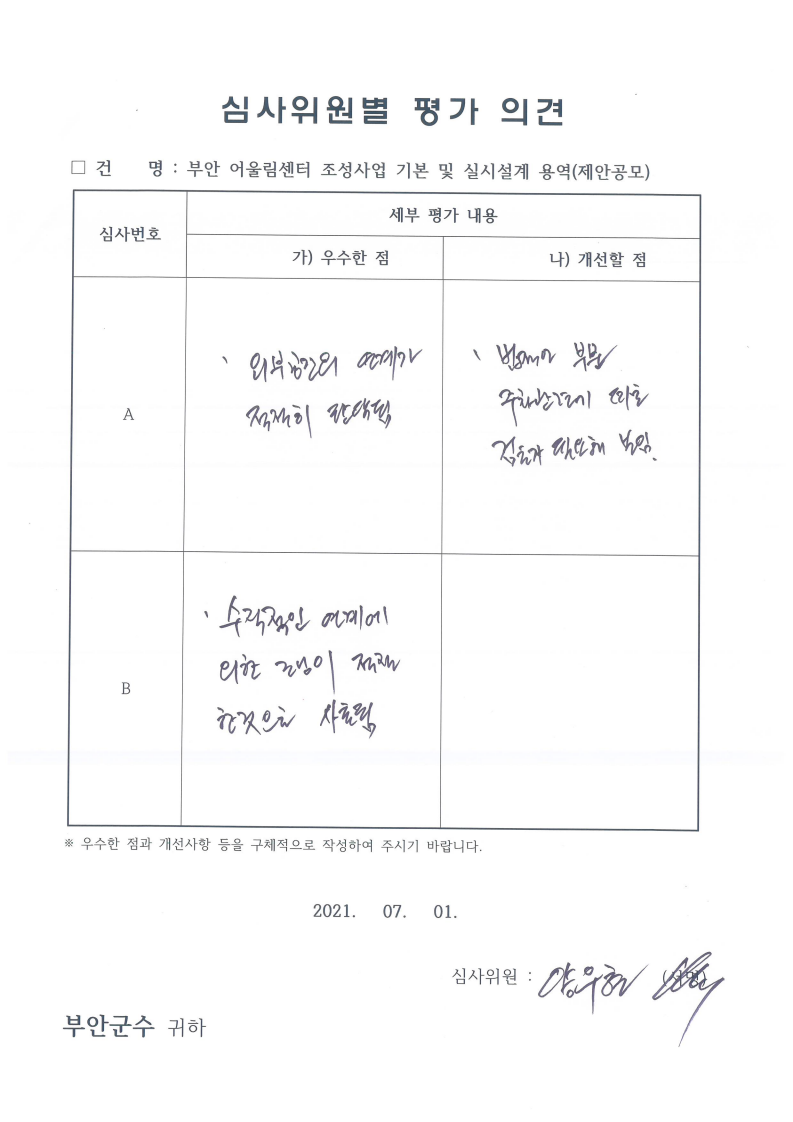 심사위원별 평가 의견
□ 건 명 : 부안 어울림센터 조성사업 기본 및 실시설계 용역(제안공모)
심사번호
세부 평가 내용
가) 우수한 점
나) 개선할 점
A
외부공간의 연계가
적절히 판단됨
부분
검토가 필요해 보임.
B
수직적인 연계에
의한 적절
한것으로 사료됨
※ 우수한 점과 개선사항 등을 구체적으로 작성하여 주시기 바랍니다.
2021. 07. 01.
심사위원 : 양우현 (서명)
부안군수 귀하